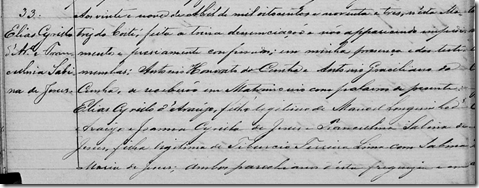 33.
Elias Cyrillo
d'Ar.º Ram
ecilia Sabi
na de Jesus.
Aos vinte e nove de Abril de mil oitocentos e noventa e tres, nesta Ma
triz do feita a denunciação e nos apparecendo impedi
mento e previamente confessados, em minha presença e das teste
munhas, Antonio Honorato da Cunha e Antonio Graciliano da
Cunha, se receberam em Matrimonio com palavras de presente,
Elias Cyrillo d'Araujo, filho legitimo de Manoel Joaquim de
Araujo e Joanna de Jesus e Sabina de
Jesus, filha legitima de Tiburcio Ferreira Lima e Sabina
Maria de Jesus; ambos parochianos d'esta freguezia e